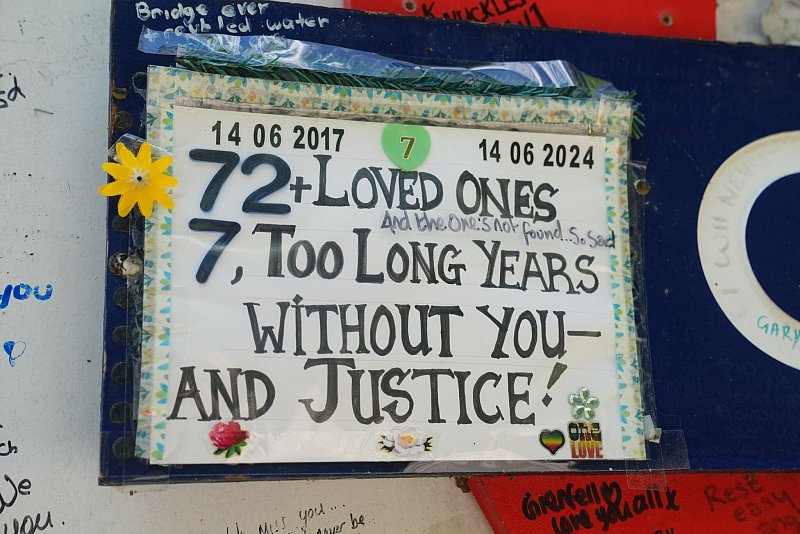 Bridge over
troubled water
KNUCKLES
14 06 2017
7
14 06 2024
72+LOVED ONES
And the one's not found...So Sad
7, Too Long Years
WITHOUT YOU—
AND JUSTICE!
One
LOVE
I WILL NEVER
GARY
you
We
you.
MISS you...
never be
Grenfell
Love you all x
Rest
easy